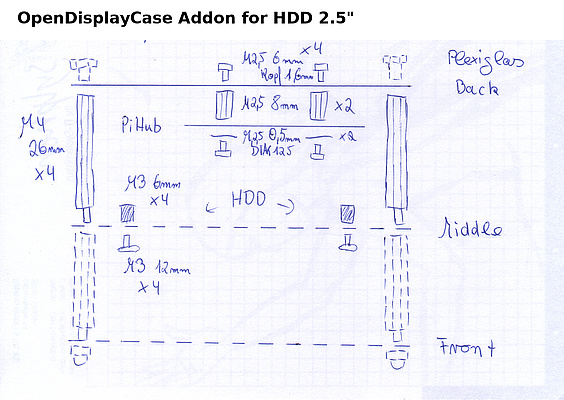 OpenDisplayCase Addon for HDD 2.5"
M2,5 6mm x4
Kopf 1,6mm
Plexiglas
Back
M4
26mm
x4
PiHub
M2,5 8mm x2
M2,5 0,5mm x2
DIN 125
M3 6mm
x4
HDD
Middle
M3 12mm
x4
Front